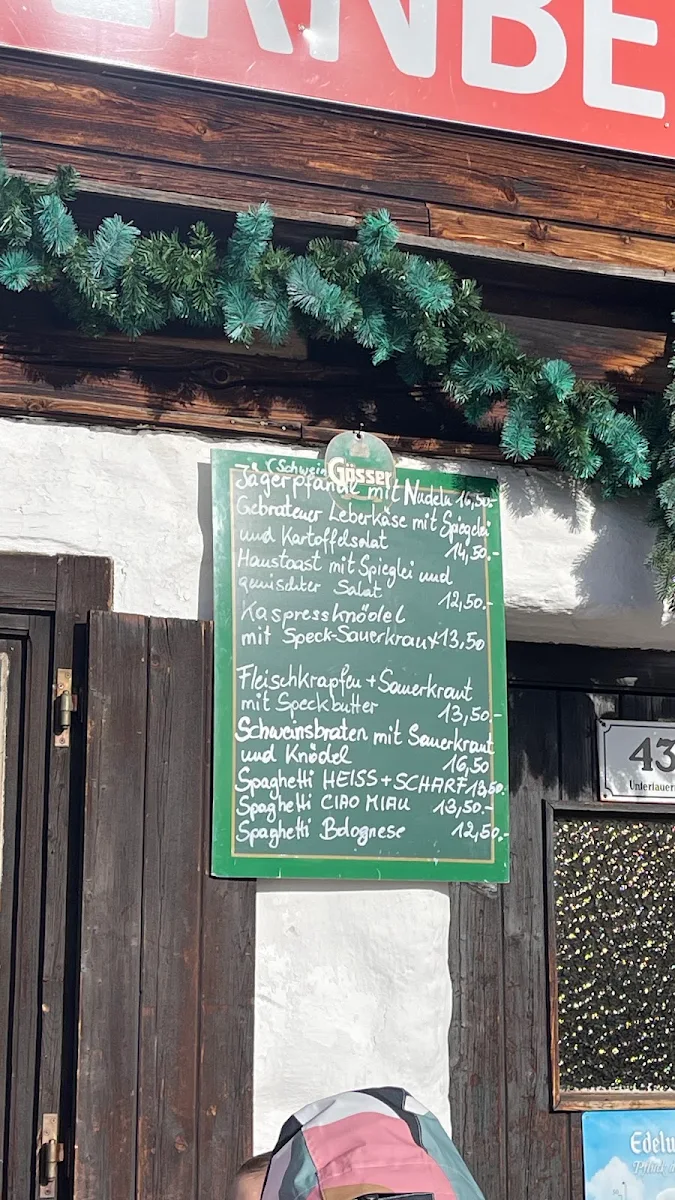 ERNBE
(Schwein
Gösser
Jägerpfandl mit Nudeln 16,50.-
Gebratener Leberkäse mit Spiegelei
und Kartoffelsalat 14,50.-
Haustoast mit Spieglei und
gemischter Salat 12,50.-
Kaspressknödel
mit Speck-Sauerkraut 13,50
Fleischkrapfen + Sauerkraut
mit Speckbutter 13,50.-
Schweinsbraten mit Sauerkraut
und Knödel 16,50
Spaghetti HEISS + SCHARF 13,50.
Spaghetti CIAO MIAU 13,50.-
Spaghetti Bolognese 12,50.-
43
Untertauern
Edelw